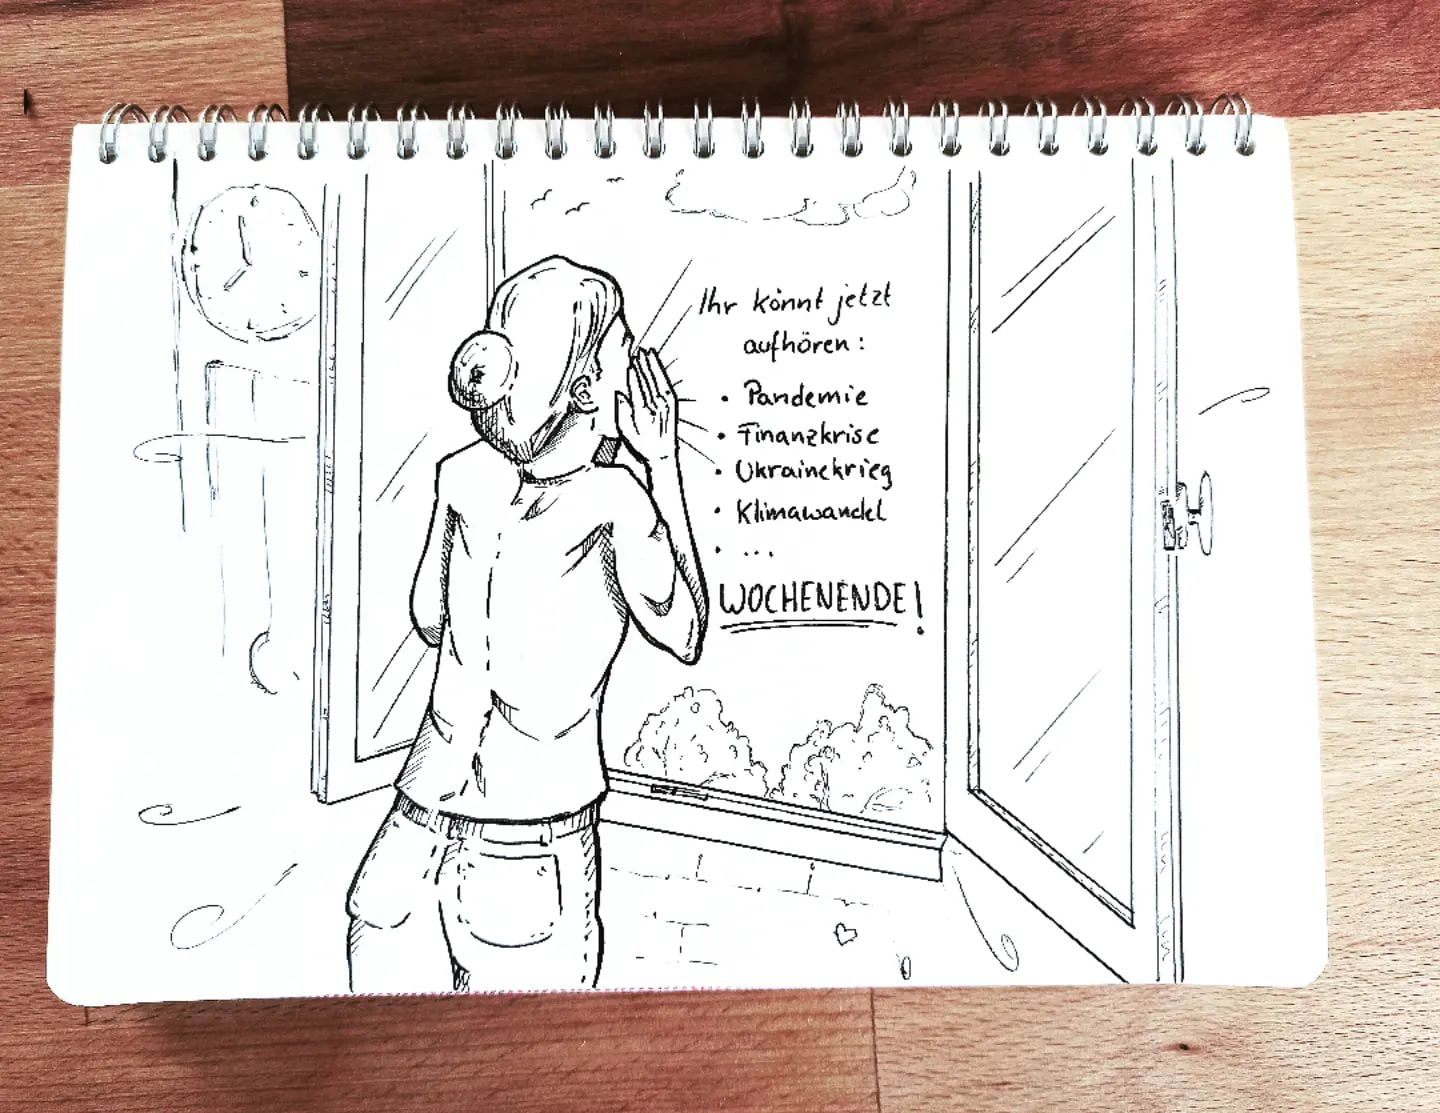 Ihr könnt jetzt
aufhören:
• Pandemie
• Finanzkrise
• Ukrainekrieg
• Klimawandel
• ...
WOCHENENDE!